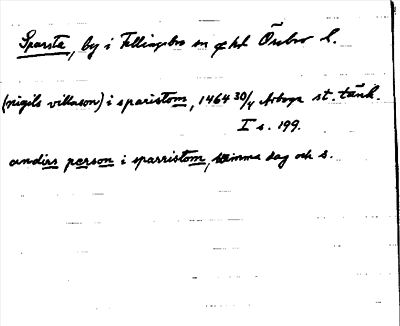 Sparsta, by i Fellingsbro sn o hd Örebro l.
(nigils villason) i sparistom, 1464 30/4 Arboga st. tänk.
I s. 199.
andirs person i sparristom, samma dag och s.